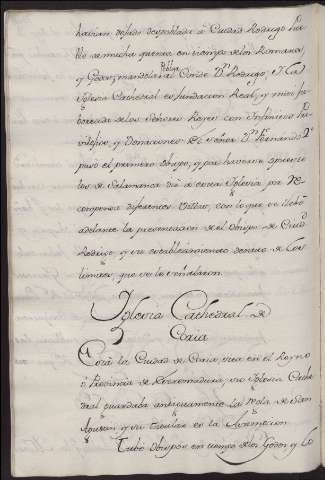 havian dejado despoblado a Ciudad Rodrigo
blo a mucha gente en tiempo de los Romanos,
y Godos, mandola poblar al Conde Dn. Rodrigo, y la
Iglesia Cathedral es fundacion Real, y mui fa-
borecida de los Señores Reyes con
y Donaciones. El Señor Dn. Fernando 2º
puso el primero Obispo, y por haverse
los de Salamanca dio a esta Iglesia por re-
compensa diferentes Villas, con lo que se llebó
adelante la presentacion de el Obispo de Ciud.d
Rodrigo, y su establecimiento dentro de los
limites, que se le señalaron.
Iglesia Cathedral de
Coria
Está la Ciudad de Coria, sita en el Reyno
o Provincia de Extremadura, su Iglesia Cathe-
dral guardaba antiguamente la Regla de San
Agustin, y su titular es la Assumpcion.
Tubo Obispos en tiempo de los Godos, y lo